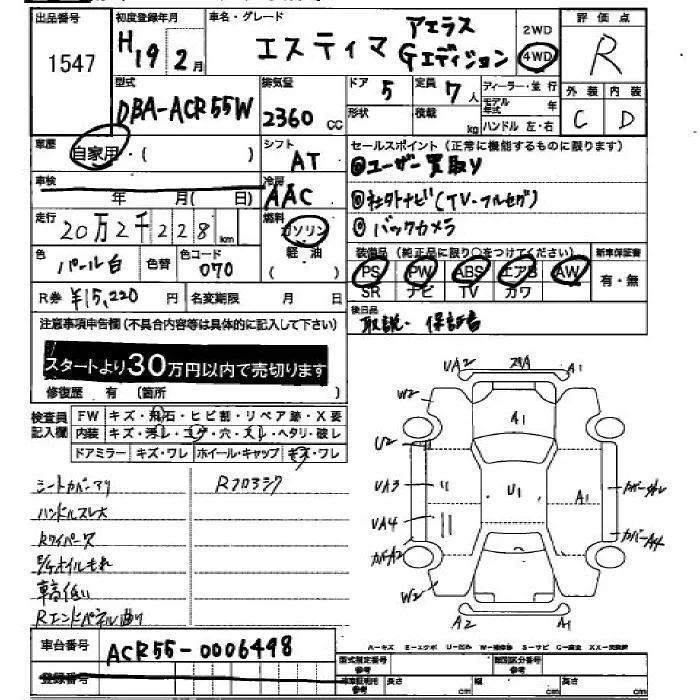 出品番号
1547
初度登録年月
H19 2月
車名・グレード
エスティマ アエラス Gエディション
2WD
4WD
評価点
R
外装 内装
C D
型式
DBA-ACR55W
排気量
2360 cc
ドア 5
形状
定員 7人
積載 kg
ディーラー・並行
モデル年式 年
ハンドル 左・右
車歴
自家用・( )
シフト
AT
セールスポイント(正常に機能するものに限ります)
ユーザー買取り
社外ナビ(TV-フルセグ)
バックカメラ
車検
年 月( 日)
冷房
AAC
走行
20万2千228km
燃料
ガソリン
軽油
色
パール白
色替
色コード
070
装備品(純正品に限り○をつけてください)
新車保証書
PS PW ABS エアB AW
SR ナビ TV カワ
有・無
R券 ¥15,220円
名変期限 月 日
後日品
取説・保証書
注意事項申告欄(不具合内容等は具体的に記入して下さい)
スタートより30万円以内で売切ります
修復歴 有(箇所 )
検査員記入欄
FW キズ・飛石・ヒビ割・リペア跡・X要
内装 キズ・汚レ・コゲ・穴・スレ・ヘタリ・破レ
ドアミラー キズ・ワレ ホイール・キャップ キズ・ワレ
シートカバーアリ
Rフロアシタ
ハンドルスレ大
Rワイパー欠
オイルもれ
車高低い
Rエンドパネル曲り
UA2
A1
W2
A1
U2
UA3
U1
A1
UA4
W2
A2
A1
車台番号
ACR55-0006498
登録番号
A-キズ E-エクボ U-凹み W-補修跡 S-サビ C-腐食 XX-交換済
型式指定番号
参考
類別区分番号
参考
車庫証明用
参考
長さ cm
幅 cm
高さ cm